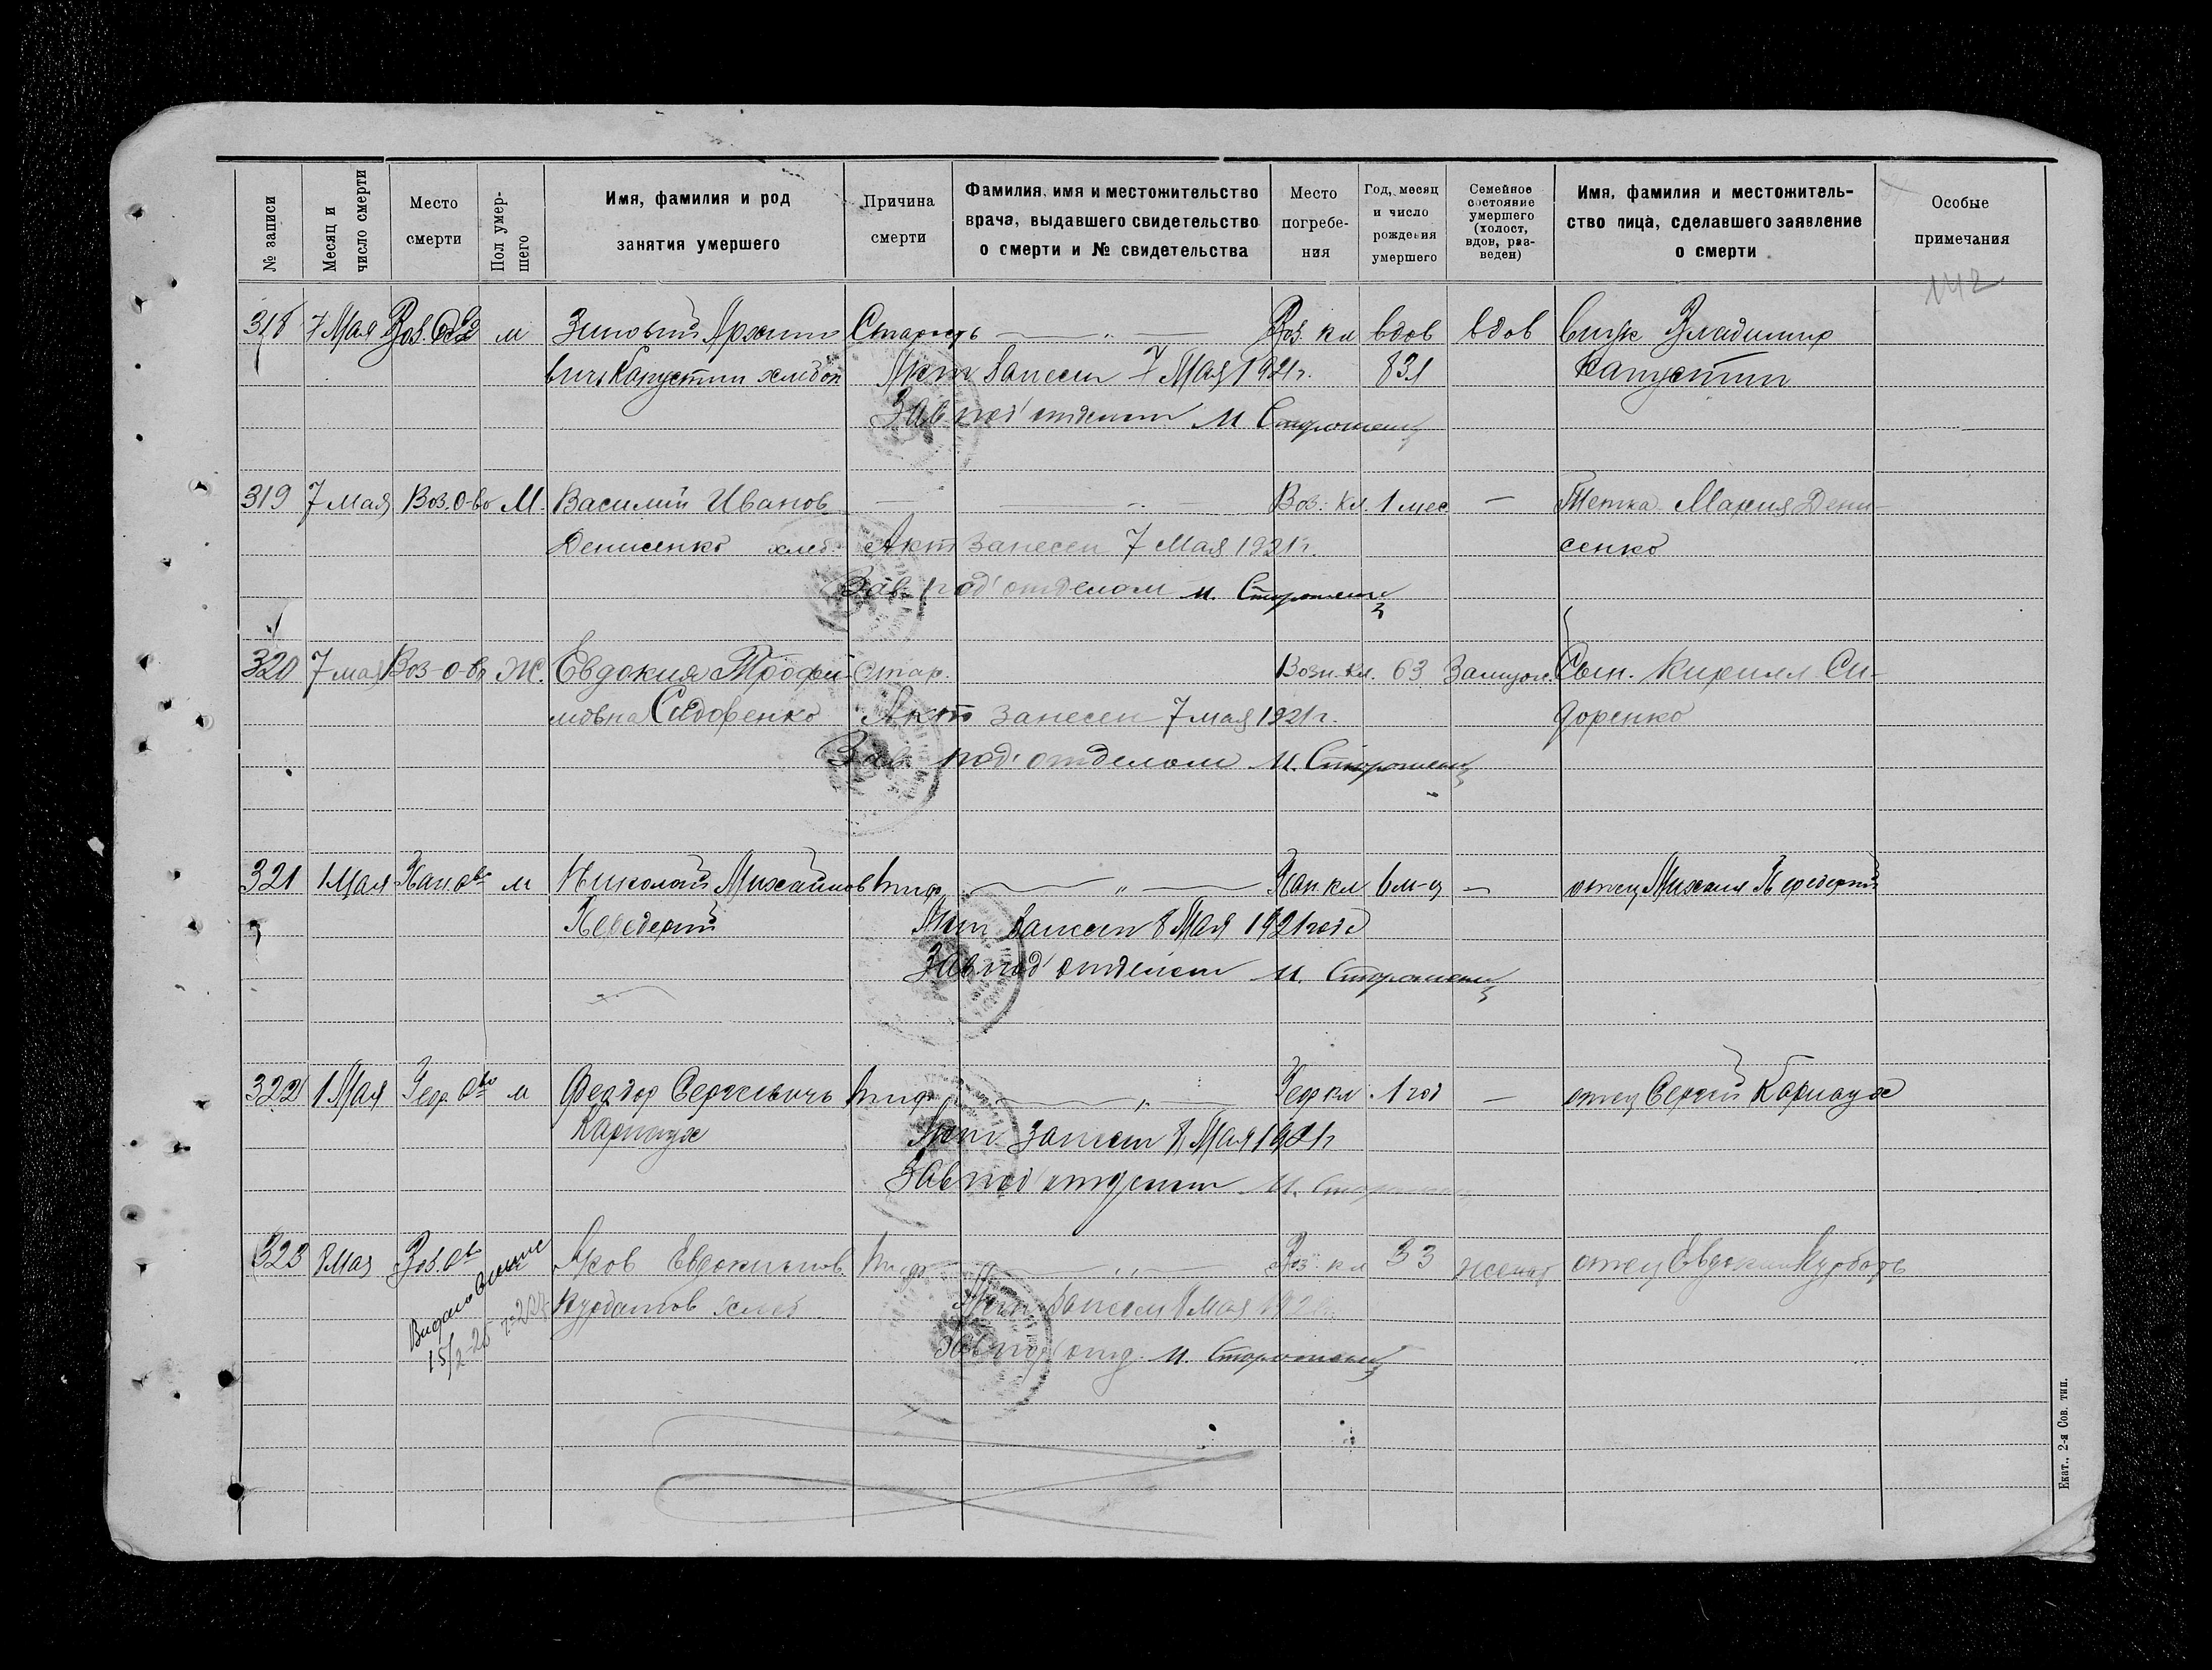 № записи
Месяц и число смерти
Место смерти
Пол умер-шего
Имя, фамилия и род занятия умершего
Причина смерти
Фамилия, имя и местожительство врача, выдавшего свидетельство о смерти и № свидетельства
Место погребе-ния
Год, месяц и число рождения умершего
Семейное состояние умершего (холост, вдов, раз-веден)
Имя, фамилия и местожитель-ство лица, сделавшего заявление о смерти
Особые примечания
142
318 7 Мая м Зиновий Архипо Старость Воз. кл вдов вдов внук Владимир
вичъ Капустин хлебоп Акт занесен 7 Мая 1921 г. 83 л Капустин
Зав под' отделом М Сторожен
319 7 Мая Воз. О-во М. Василий Иванов. Воз. Кл. 1 мес — Тетка Мария Дени-
Денисенко хлеб. Акт занесен 7 Мая 1921 г. сенко
Зав. под' отделом М. Сторожен
320 7 мая Воз-о-во Ж. Евдокия Трофи стар. Возн. кл. 63 Замуж. Сын. Кирилл Си-
мовна Сидоренко Акт занесен 7 мая 1921 г. доренко
Зав. под' отделом М. Сторожен
321 1 Мая м Николай Михайлов тиф „ кл 6 м-ц — отец Михаил
Акт занесен 8 Мая 1921 года
Зав под' отделом М. Сторожен
322 1 Мая м Феодор Сергеевичъ тиф „ кл. 1 год — отец Сергей Карнаух
Карнаух Акт занесен 8 Мая 1921 г
Зав под' отделом М.
323 8 Мая Воз. О-во Яков Евдокимов. тиф „ Воз. кл 33 женат отец Евдоким
хлеб. Акт занесен 8 Мая
Зав под' отд. М. Сторожен
15/2-25
Екат., 2-я Сов. тип.